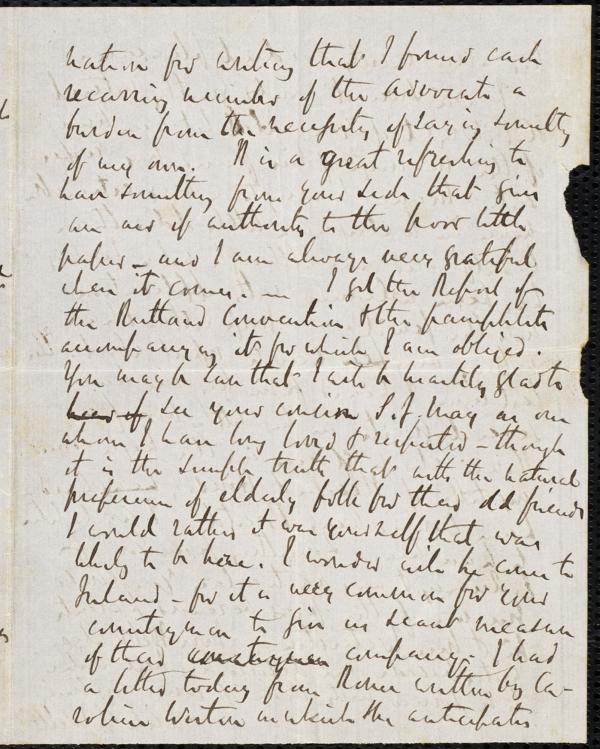 nation for writing that I found each
recurring number of the Advocate a
burden from the necessity of saying something
of my own. It is a great refreshing to
have something from your side that gives
an air of authority to the poor little
paper – and I am always very grateful
when it comes. — I got the Report of
the Rutland Convention & the pamphlets
accompanying it for which I am obliged.
You may be sure that I will be heartily glad to
hear of see your cousin S. J. May as one
whom I have long loved & respected – though
it is the simple truth that with the natural
preference of elderly folk for their old friends
I would rather it was yourself that was
likely to be here. I wonder will he come to
Ireland – for it is very common for your
countrymen to give us scant measure
of their countrymen company. I had
a letter today from Rome written by Ca-
roline Weston in which she anticipates